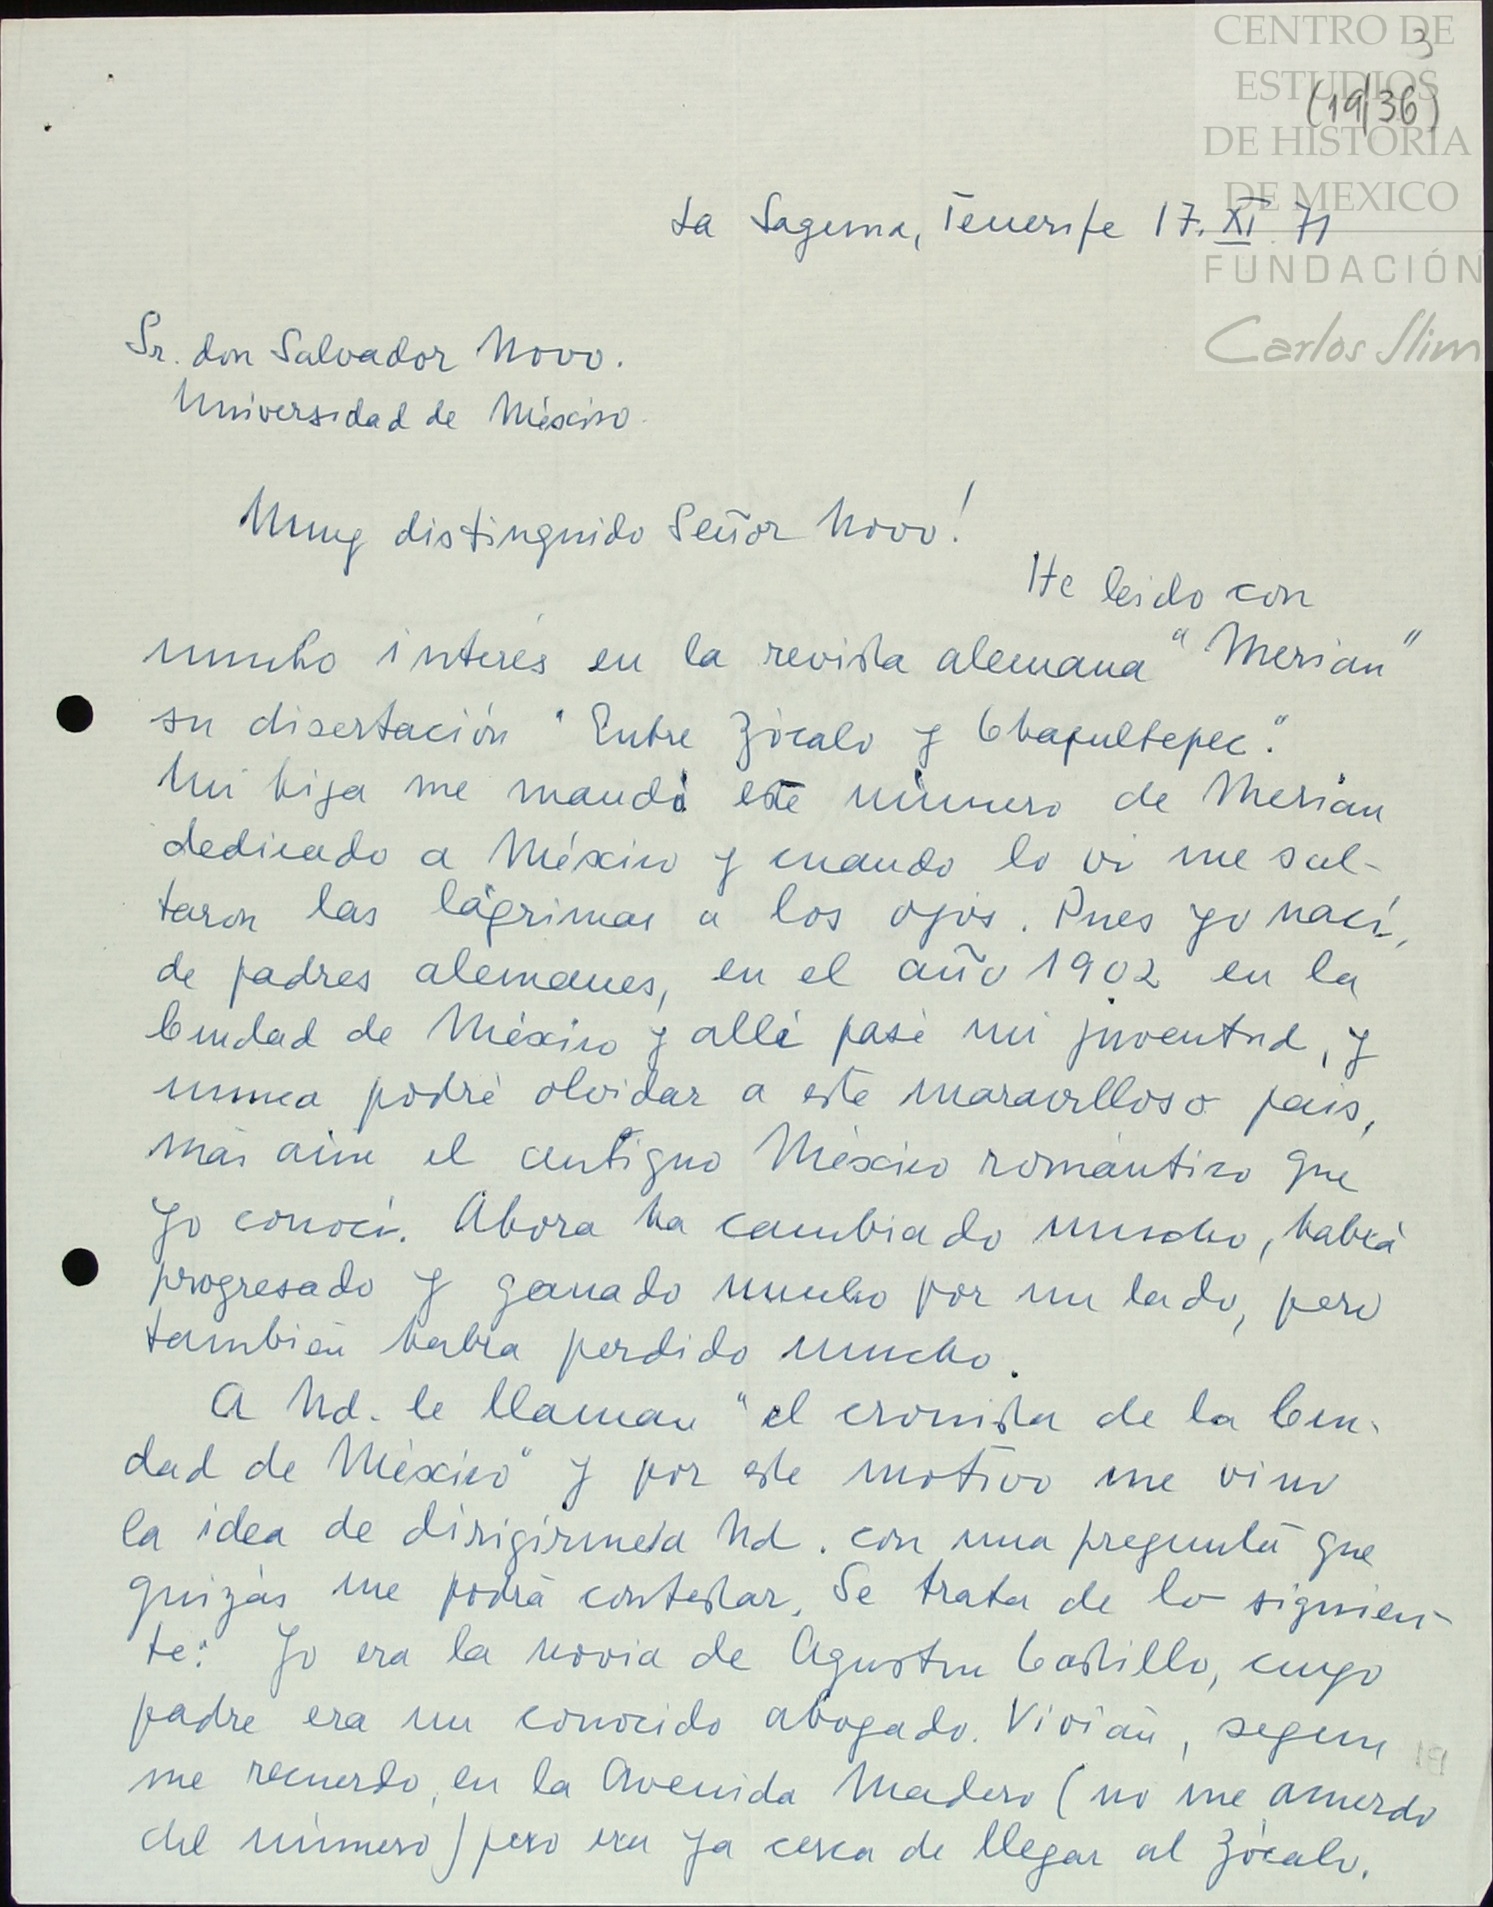 CENTRO DE
ESTUDIOS
DE HISTORIA
DE MEXICO
FUNDACIÓN
Carlos Slim
3
(19/36)
La Laguna, Tenerife 17. XI. 71
Sr. don Salvador Novo.
Universidad de México.
Muy distinguido Señor Novo!
He leido con
mucho interés en la revista alemana "Merian"
su disertación "Entre Zócalo y Chapultepec."
Mi hija me mandó este número de Merian
dedicado a México y cuando lo vi me sal-
taron las lágrimas a los ojos. Pues yo nací,
de padres alemanes, en el año 1902 en la
Ciudad de México y allí pasé mi juventud, y
nunca podré olvidar a este maravilloso país,
más aún el antiguo México romántico que
yo conocí. Ahora ha cambiado mucho, habrá
progresado y ganado mucho por un lado, pero
también habrá perdido mucho.
A Ud. le llaman "el cronista de la Ciu-
dad de México" y por este motivo me vino
la idea de dirigirme a Ud. con una pregunta que
quizás me podrá contestar. Se trata de lo siguien-
te: Yo era la novia de Agustin Castillo, cuyo
padre era un conocido abogado. Vivían, segun
me recuerdo, en la Avenida Madero (no me acuerdo
del número) pero era ya cerca de llegar al Zócalo.